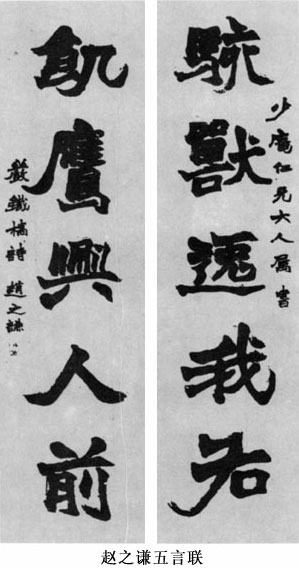 少仁兄大人屬書
駭獸逸我右
飢鷹興人前
嚴鐵橋詩 趙之謙
赵之谦五言联